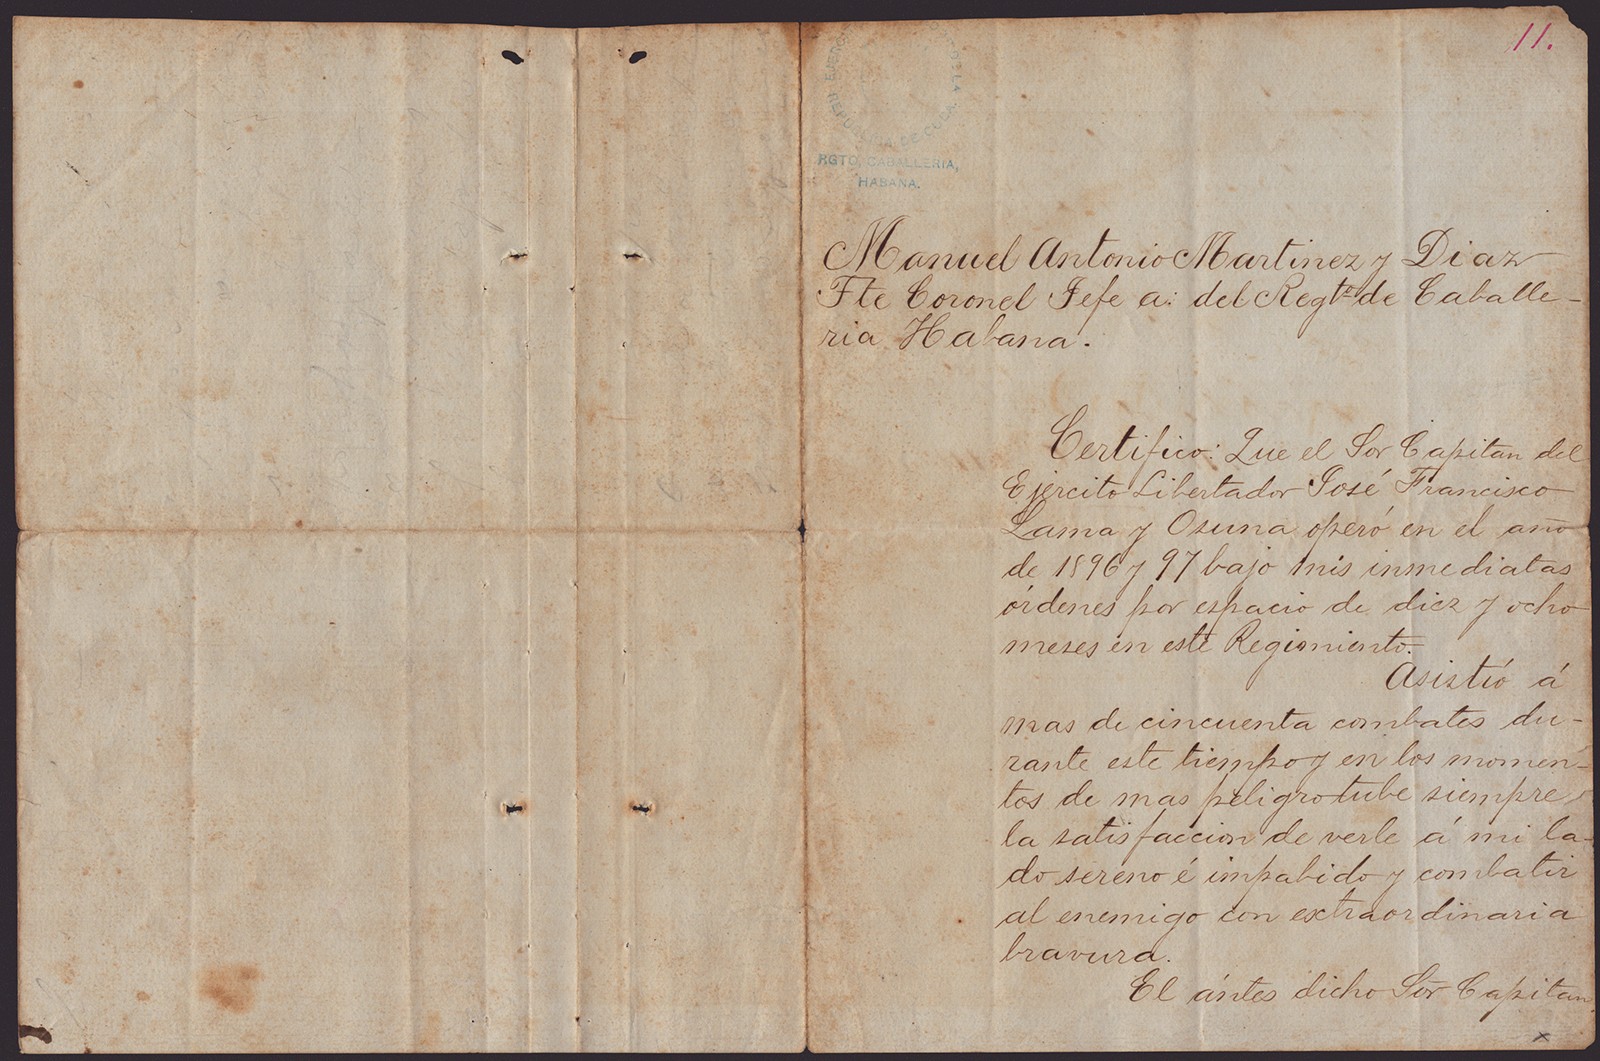 11.
REPUBLICA DE CUBA.
RGTO. CABALLERIA,
HABANA.
Manuel Antonio Martinez y Diaz
Tte Coronel Jefe a: del Regto de Caballe-
ria Habana.
Certifico: Que el Sor Capitan del
Ejército Libertador José Francisco
Lama y Osuna operó en el año
de 1896 y 97 bajo mis inmediatas
órdenes por espacio de diez y ocho
meses en este Regimiento.
Asistió á
mas de cincuenta combates du-
rante este tiempo y en los momen-
tos de mas peligro tube siempre
la satisfaccion de verle á mi la-
do sereno é impabido y combatir
al enemigo con extraordinaria
bravura.
El ántes dicho Sor Capitan
x